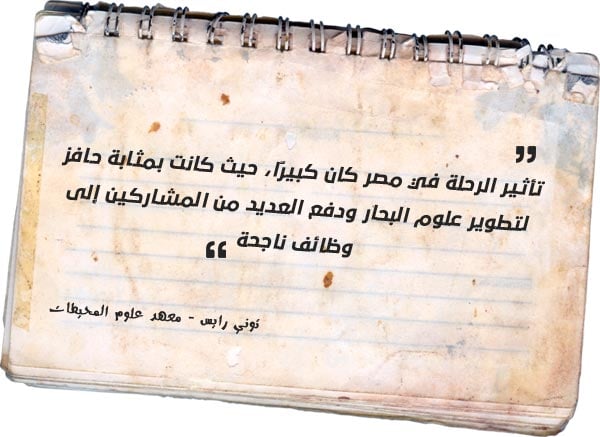 ❞
تأثير الرحلة في مصر كان كبيرًا، حيث كانت بمثابة حافز
لتطوير علوم البحار ودفع العديد من المشاركين إلى
وظائف ناجحة ❝
توني رايس - معهد علوم المحيطات